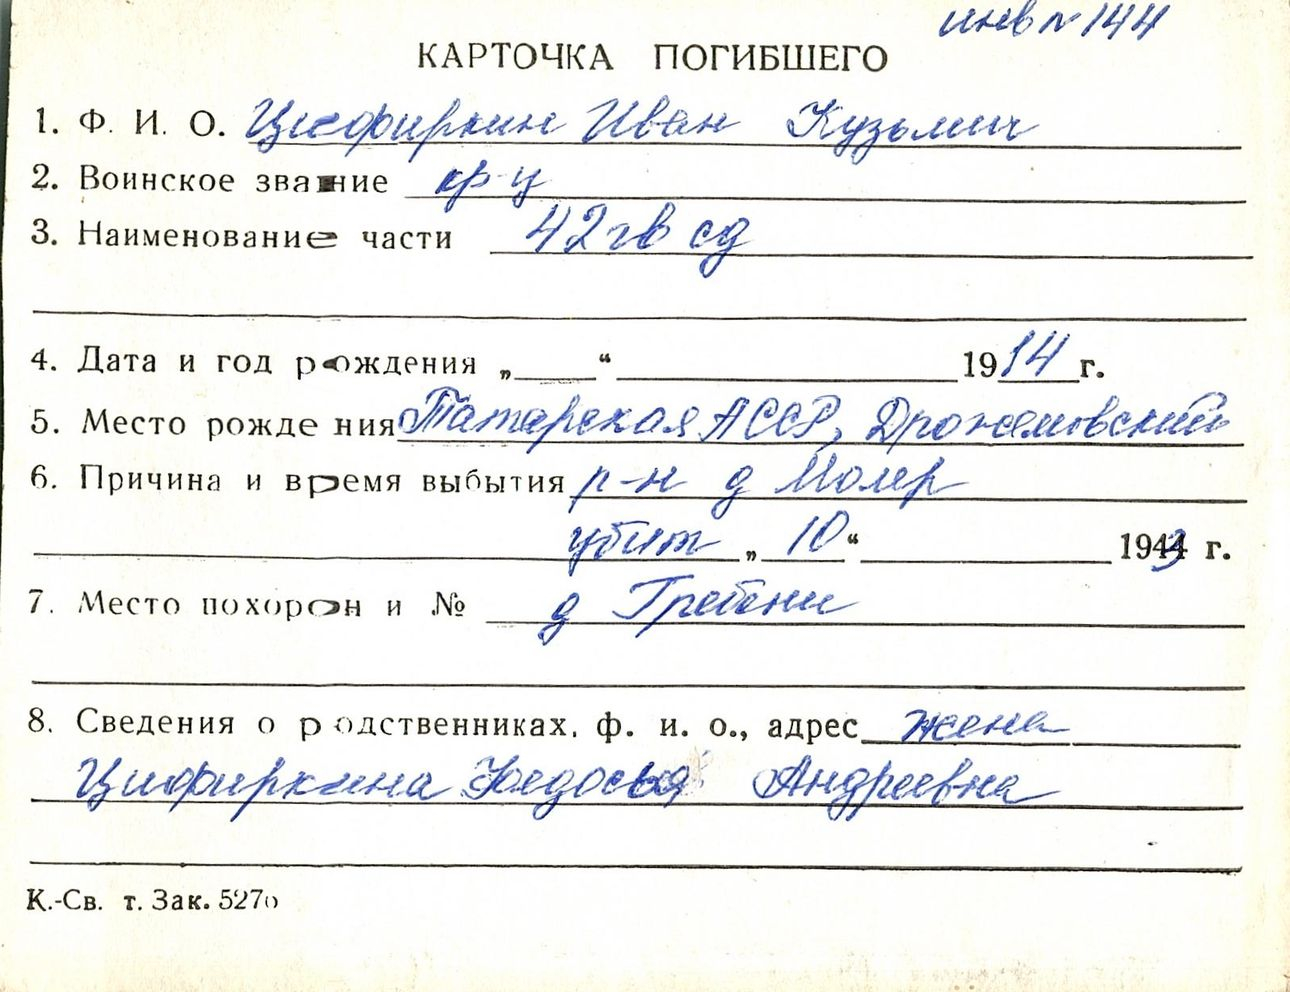 инв № 144
КАРТОЧКА ПОГИБШЕГО
1. Ф. И. О. Цифиркин Иван Кузьмич
2. Воинское звание кр-ц
3. Наименование части 42 гв сд
4. Дата и год рождения „ “ 1914 г.
5. Место рождения Татарская АССР, Дрожжановский
6. Причина и время выбытия р-н д Молер
убит „ 10 “ 1943 г.
7. Место похорон и № д Гребени
8. Сведения о родственниках, ф. и. о., адрес жена
Цифиркина Федосья Андреевна
К.-Св. т. Зак. 5270